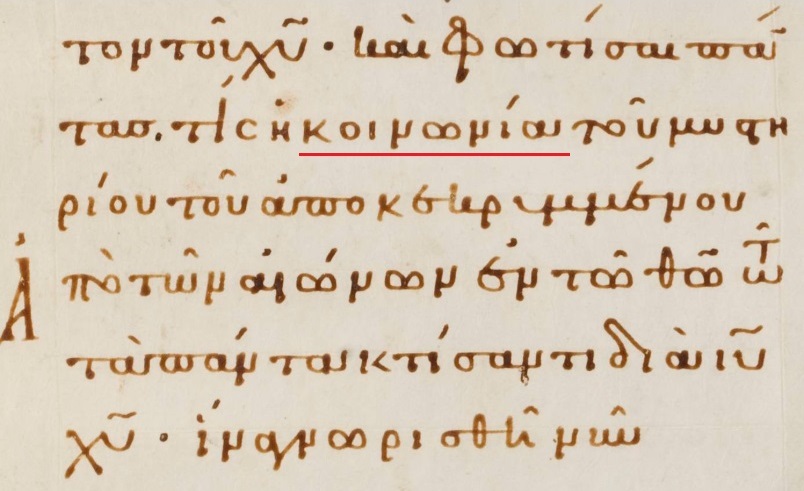 τον τοῦ χῦ· καὶ φωτίσαι πάν
τας. τίς ἡ κοινωνία τοῦ μυστη
ρίου τοῦ ἀποκεκρυμμένου
Ἀπὸ τῶν αἰώνων ἐν τῶ θῶ τῶ
τὰ πάντα κτίσαντι διὰ ιῦ
χῦ· ἵνα γνωρισθῆ νῦν